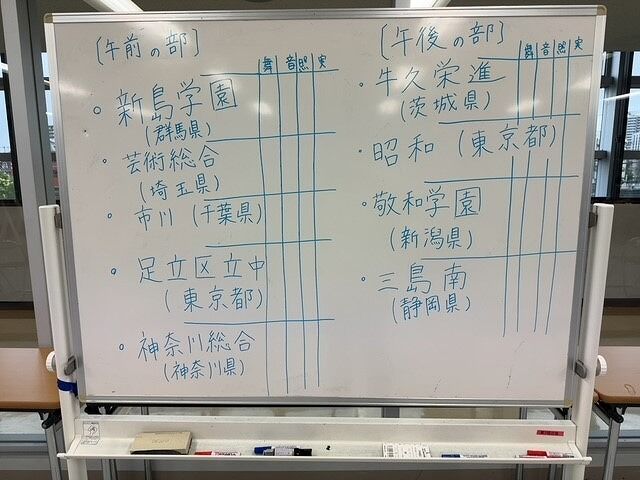 〔午前の部〕
舞 音 照 実
。新島学園
(群馬県)
・芸術総合
(埼玉県)
。市川(千葉県)
。足立区立中
(東京都)
。神奈川総合
(神奈川県)
〔午後の部〕
舞 音 照 実
・牛久栄進
(茨城県)
・昭和(東京都)
・敬和学園
(新潟県)
・三島南
(静岡県)